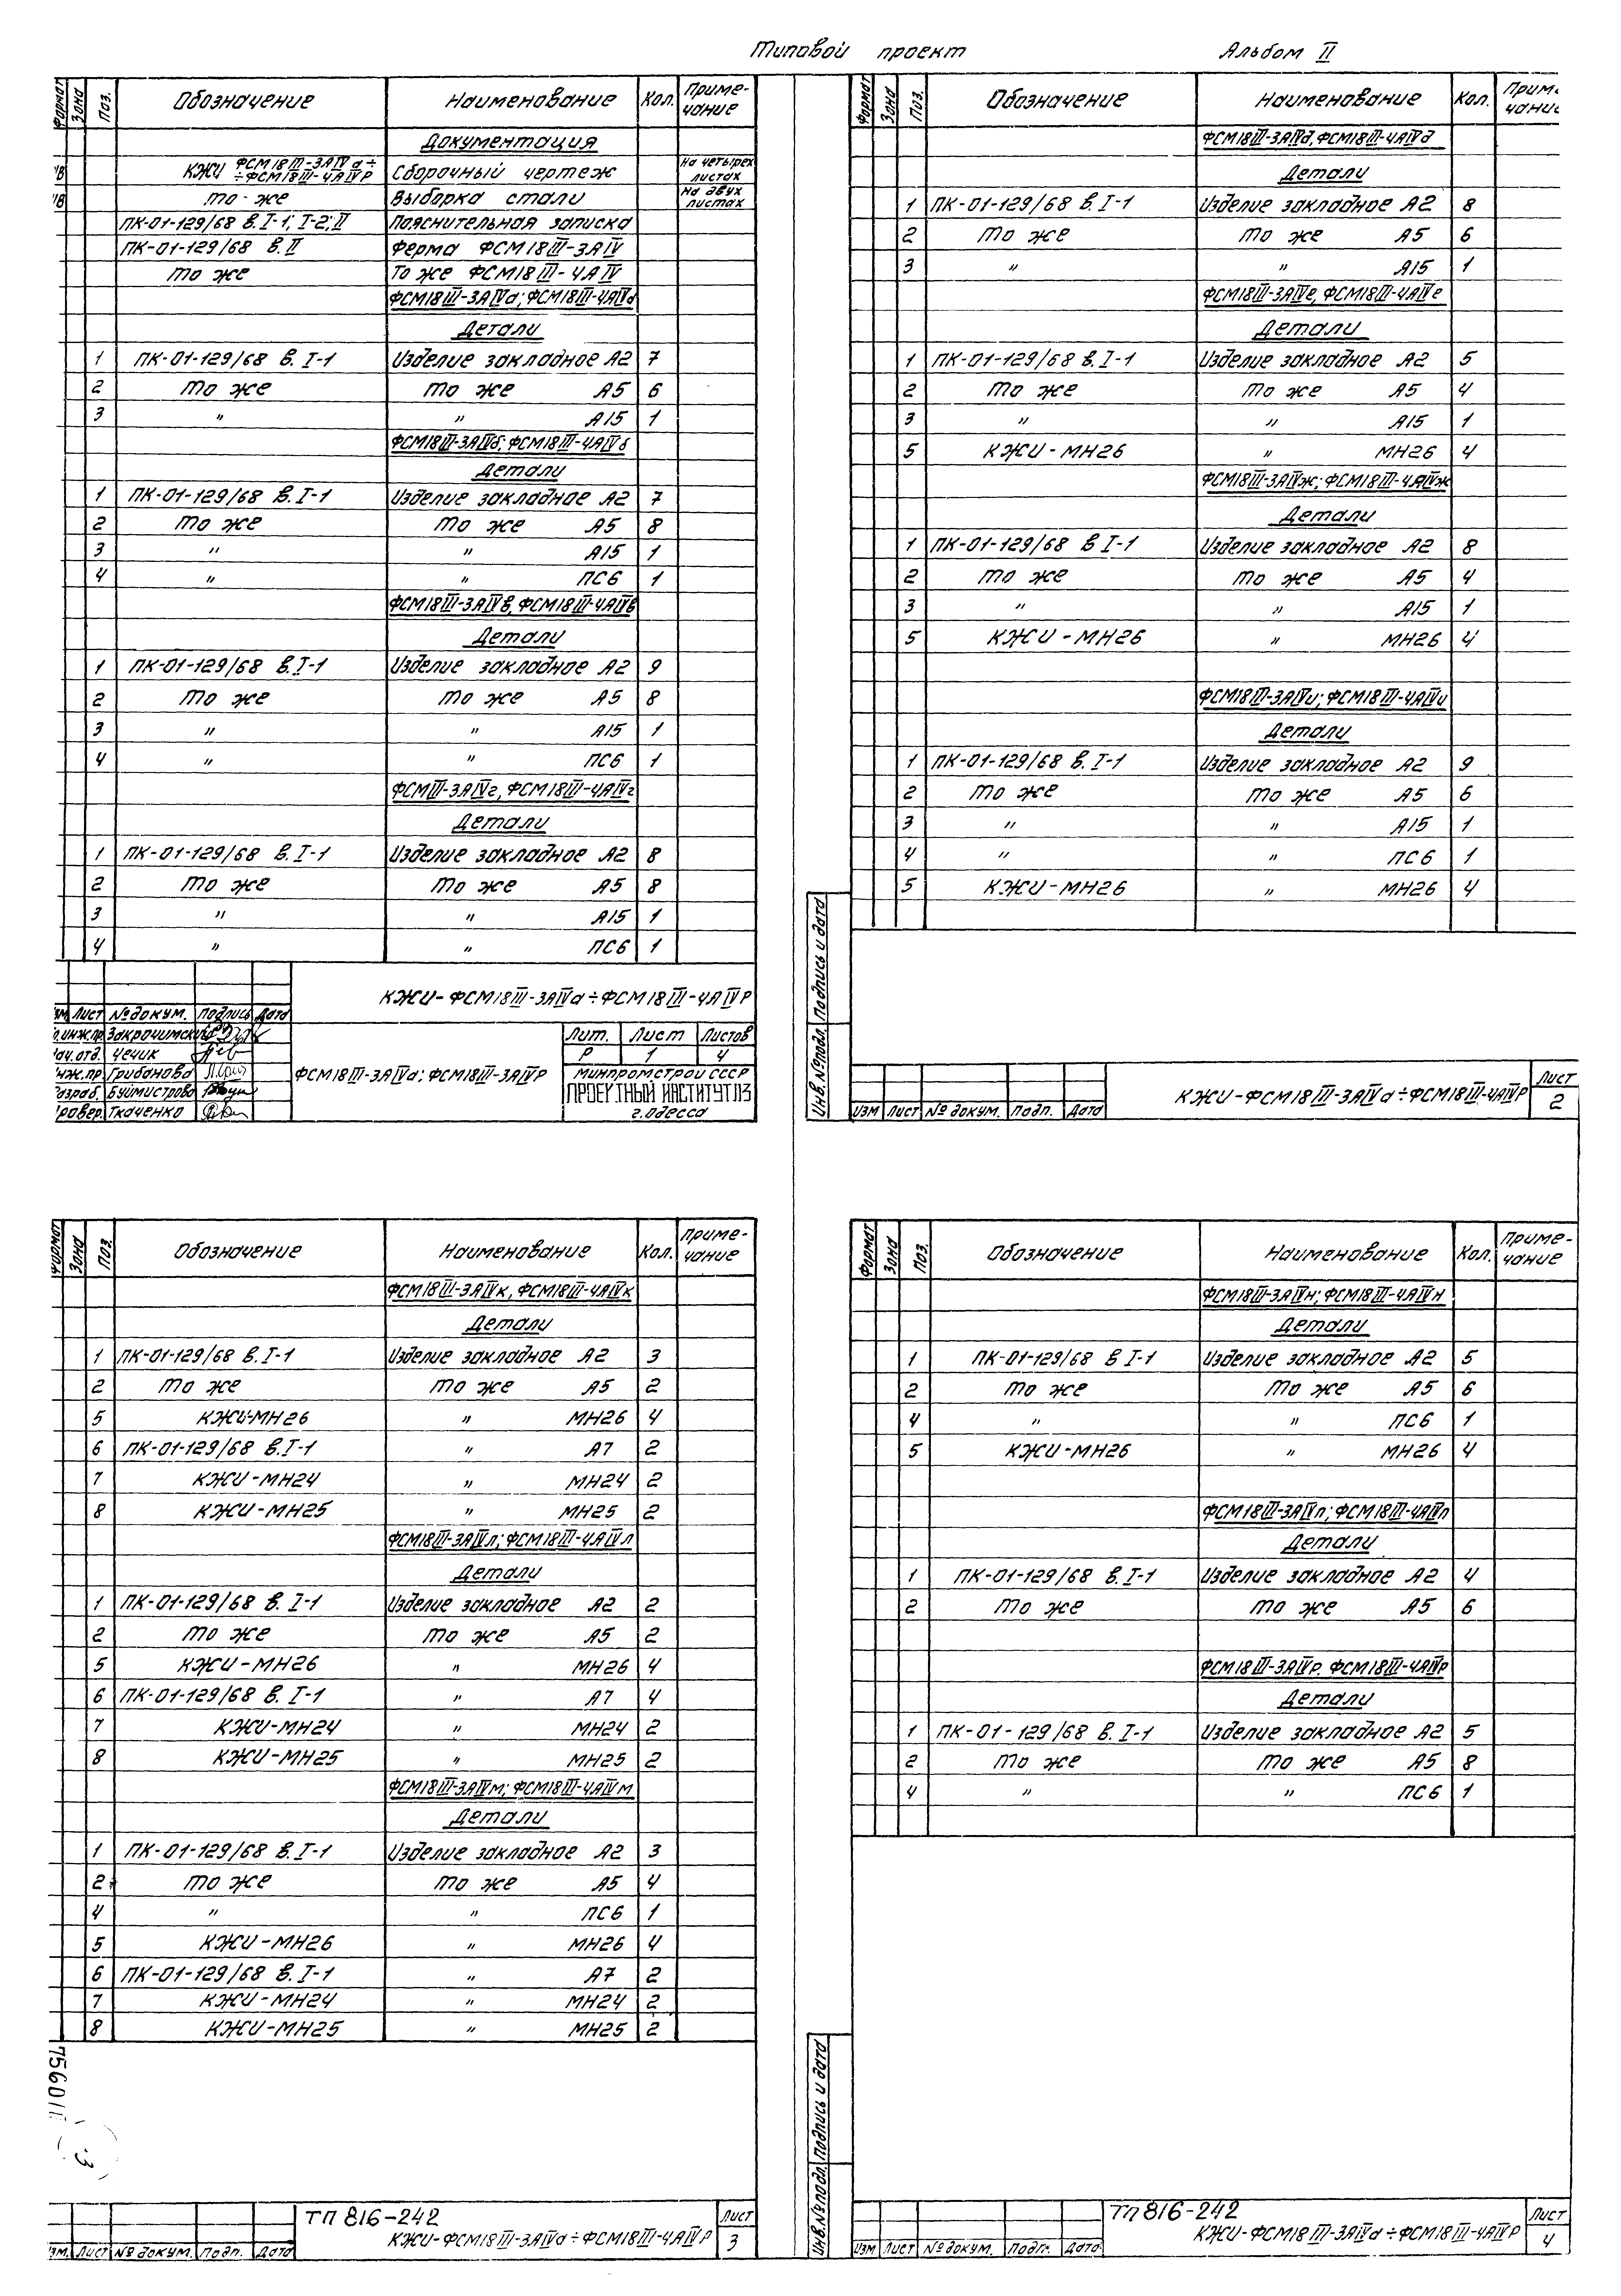 Типовой проект Альбом II
Формат Зона Поз. Обозначение Наименование Кол. Приме-чание
Документация
КЖИ ФСМ18III-3АIVа÷ ÷ФСМ18III-4АIVР Сборочный чертеж На четырех листах
то же Выборка стали На двух листах
ПК-01-129/68 в. I-1; I-2; II Пояснительная записка
ПК-01-129/68 в. II Ферма ФСМ18III-3АIV
то же То же ФСМ18III-4АIV
ФСМ18III-3АIVа; ФСМ18III-4АIVа
Детали
1 ПК-01-129/68 в. I-1 Изделие закладное А2 7
2 то же то же А5 6
3 " " А15 1
ФСМ18III-3АIVб; ФСМ18III-4АIVб
Детали
1 ПК-01-129/68 в. I-1 Изделие закладное А2 7
2 то же то же А5 8
3 " " А15 1
4 " " ПС6 1
ФСМ18III-3АIVв, ФСМ18III-4АIVв
Детали
1 ПК-01-129/68 в. I-1 Изделие закладное А2 9
2 то же то же А5 8
3 " " А15 1
4 " " ПС6 1
ФСМIII-3АIVг, ФСМ18III-4АIVг
Детали
1 ПК-01-129/68 в. I-1 Изделие закладное А2 8
2 то же то же А5 8
3 " " А15 1
4 " " ПС6 1
КЖИ-ФСМ18III-3АIVа÷ФСМ18III-4АIVР
Лист №докум. Подпись Дата
Закрочимский
Чечик
Грибанова
Буймистрова
Ткаченко
ФСМ18III-3АIVа; ФСМ18III-3АIVР
Лит. Лист Листов
Р 1 4
Минпромстрой СССР
ПРОЕКТНЫЙ ИНСТИТУТ №3
г. Одесса
Формат Зона Поз. Обозначение Наименование Кол.
ФСМ18III-3АIVд, ФСМ18III-4АIVд
Детали
1 ПК-01-129/68 в. I-1 Изделие закладное А2 8
2 то же то же А5 6
3 " " А15 1
ФСМ18III-3АIVе, ФСМ18III-4АIVе
Детали
1 ПК-01-129/68 в. I-1 Изделие закладное А2 5
2 то же то же А5 4
3 " " А15 1
5 КЖИ-МН26 " МН26 4
ФСМ18III-3АIVж; ФСМ18III-4АIVж
Детали
1 ПК-01-129/68 в I-1 Изделие закладное А2 8
2 то же то же А5 4
3 " " А15 1
5 КЖИ-МН26 " МН26 4
ФСМ18III-3АIVи; ФСМ18III-4АIVи
Детали
1 ПК-01-129/68 в. I-1 Изделие закладное А2 9
2 то же то же А5 6
3 " " А15 1
4 " " ПС6 1
5 КЖИ-МН26 " МН26 4
Инв.№подл. Подпись и дата
Изм Лист № докум. Подп. Дата
КЖИ-ФСМ18III-3АIVа÷ФСМ18III-4АIVР
Лист 2
Формат Зона Поз. Обозначение Наименование Кол. Приме-чание
ФСМ18III-3АIVк, ФСМ18III-4АIVк
Детали
1 ПК-01-129/68 в. I-1 Изделие закладное А2 3
2 то же то же А5 2
5 КЖИ-МН26 " МН26 4
6 ПК-01-129/68 в. I-1 " А7 2
7 КЖИ-МН24 " МН24 2
8 КЖИ-МН25 " МН25 2
ФСМ18III-3АIVл; ФСМ18III-4АIVл
Детали
1 ПК-01-129/68 в. I-1 Изделие закладное А2 2
2 то же то же А5 2
5 КЖИ-МН26 " МН26 4
6 ПК-01-129/68 в. I-1 " А7 4
7 КЖИ-МН24 " МН24 2
8 КЖИ-МН25 " МН25 2
ФСМ18III-3АIVм; ФСМ18III-4АIVм
Детали
1 ПК-01-129/68 в. I-1 Изделие закладное А2 3
2 то же то же А5 4
4 " " ПС6 1
5 КЖИ-МН26 " МН26 4
6 ПК-01-129/68 в. I-1 " А7 2
7 КЖИ-МН24 " МН24 2
8 КЖИ-МН25 " МН25 2
ТП 816-242
КЖИ-ФСМ18III-3АIVа÷ФСМ18III-4АIVР
Лист № докум. Подп. Дата
Лист 3
Формат Зона Поз. Обозначение Наименование Кол. Приме-чание
ФСМ18III-3АIVн; ФСМ18III-4АIVн
Детали
1 ПК-01-129/68 в I-1 Изделие закладное А2 5
2 то же то же А5 6
4 " " ПС6 1
5 КЖИ-МН26 " МН26 4
ФСМ18III-3АIVп; ФСМ18III-4АIVп
Детали
1 ПК-01-129/68 в. I-1 Изделие закладное А2 4
2 то же то же А5 6
ФСМ18III-3АIVр. ФСМ18III-4АIVр
Детали
1 ПК-01-129/68 в. I-1 Изделие закладное А2 5
2 то же то же А5 8
4 " " ПС6 1
Инв.№подл. Подпись и дата
ТП 816-242
КЖИ-ФСМ18III-3АIVа÷ФСМ18III-4АIVР
Изм Лист № докум. Подп. Дата
Лист 4